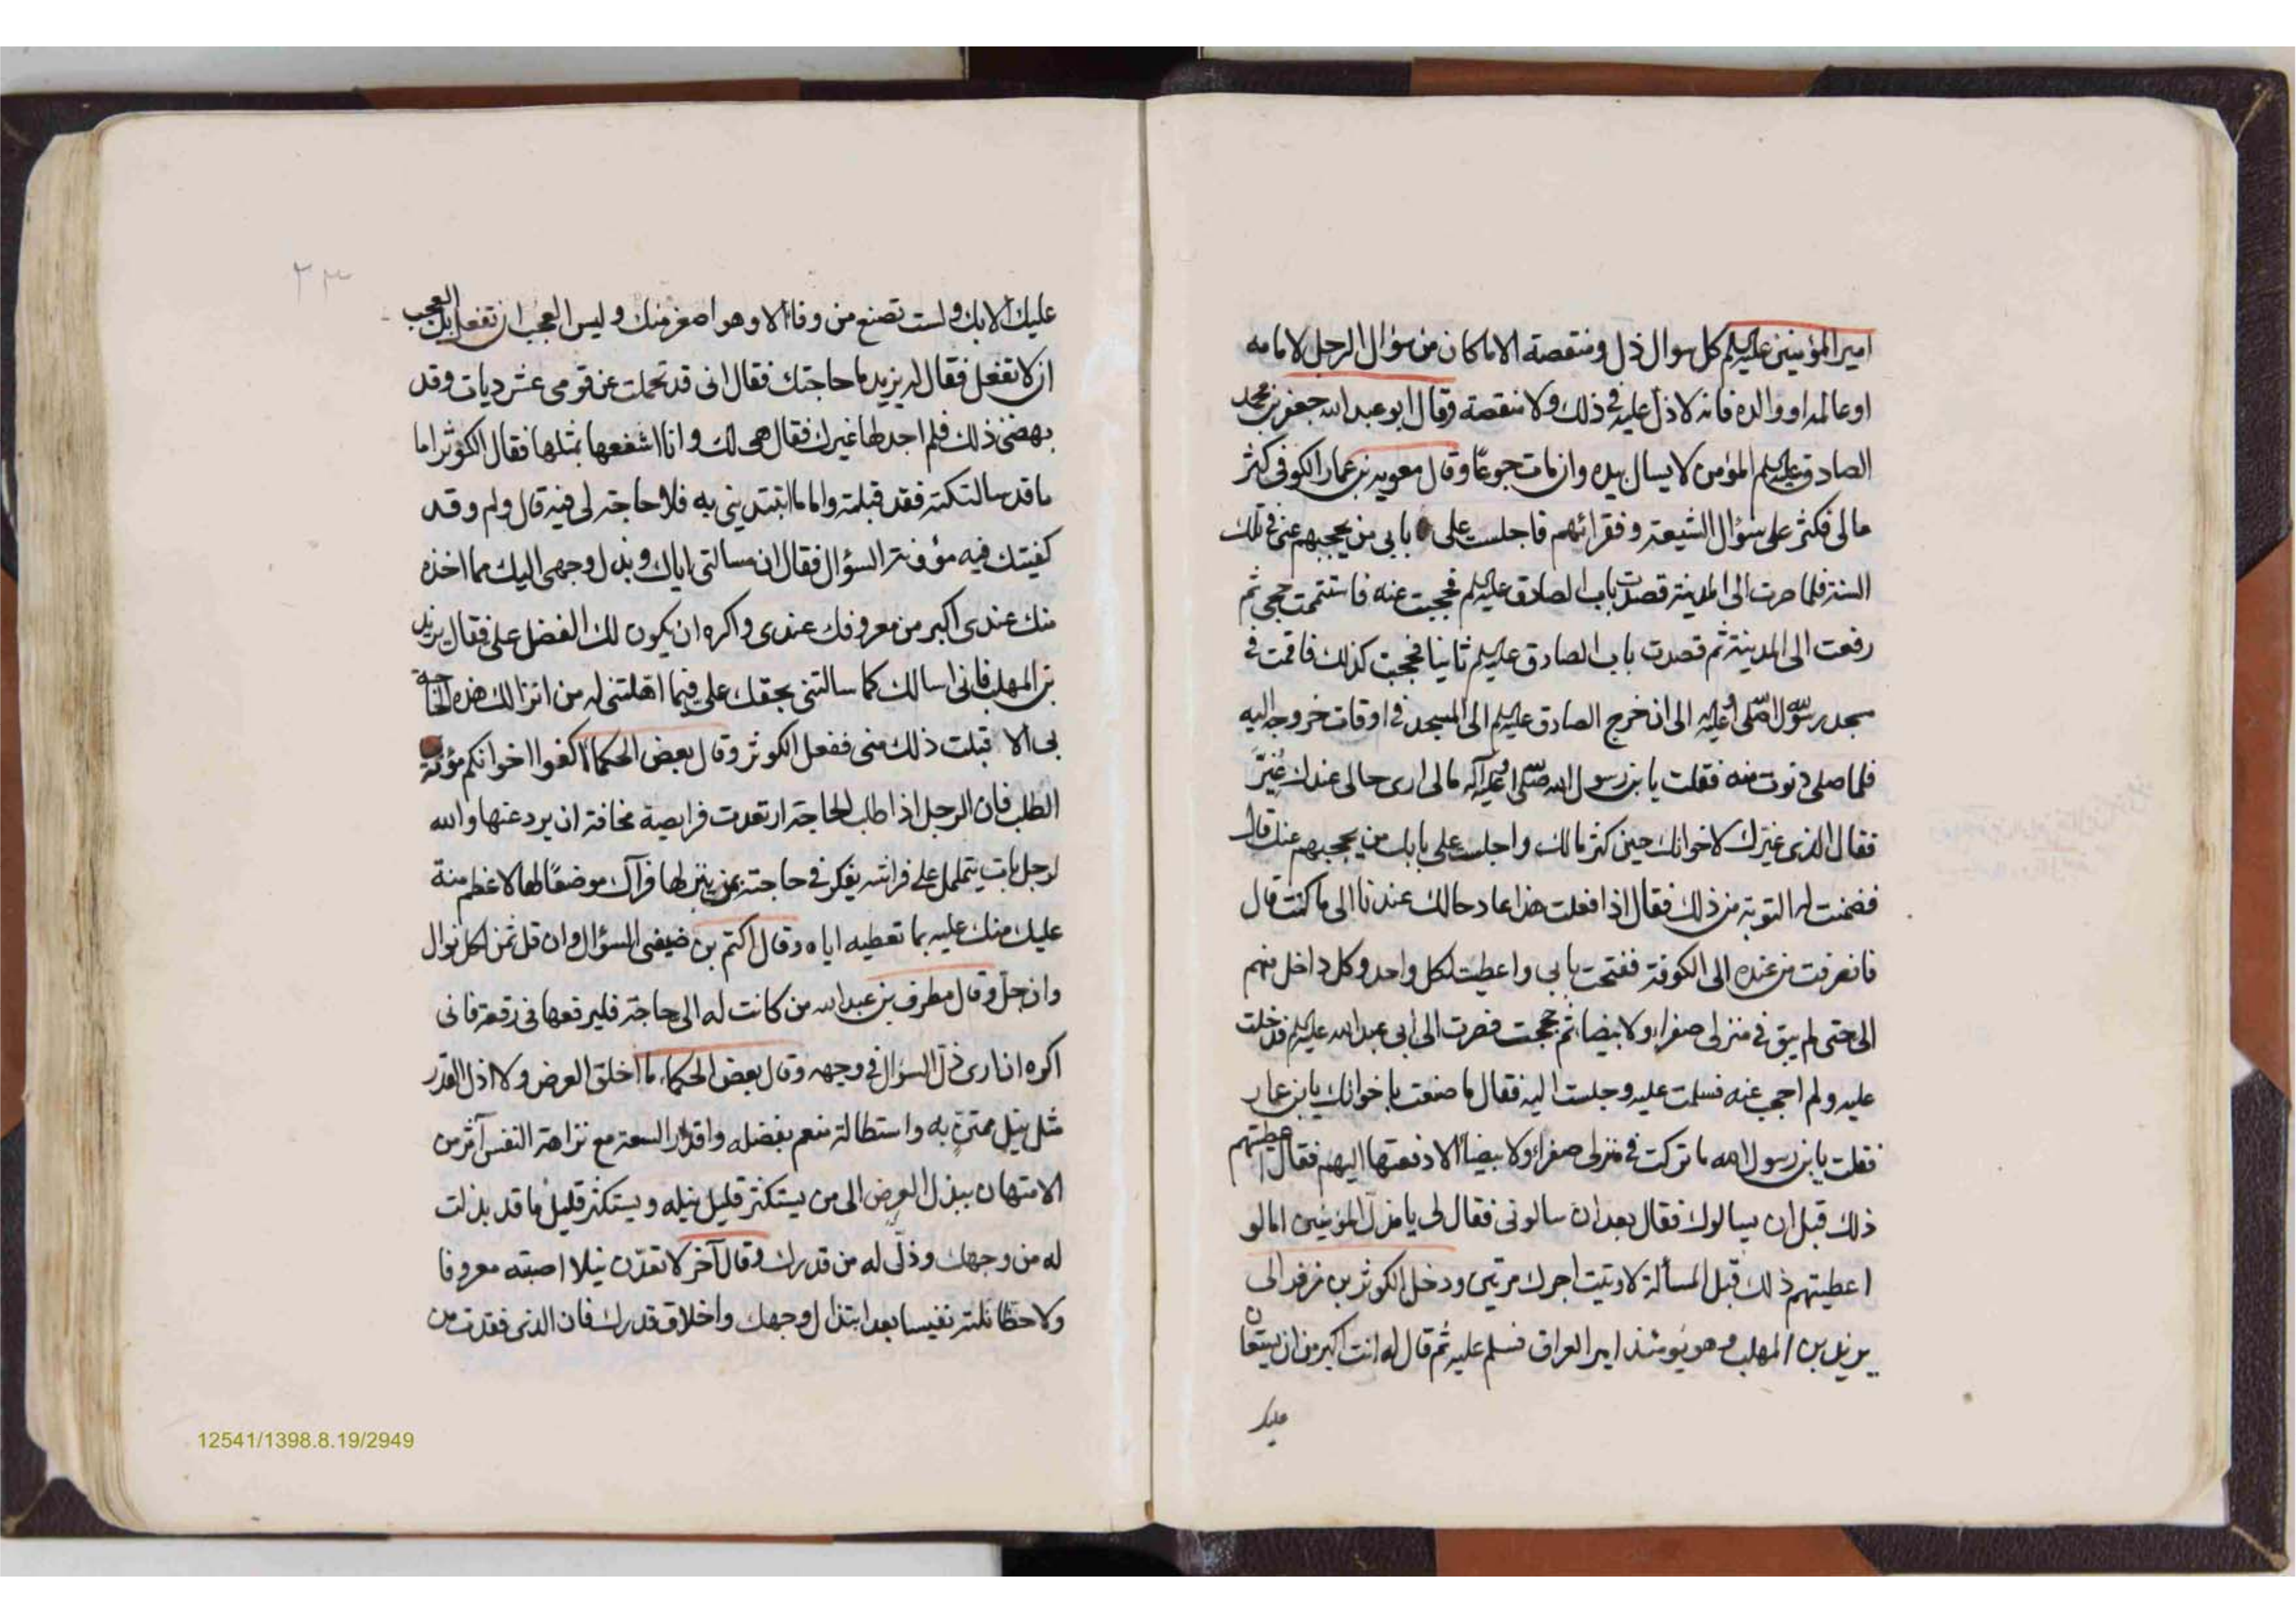 امير المؤمنين عليه السلم كل سوال ذل ومنقصة الا ما كان من سؤال الرجل لامامه
او عالمه او والده فانه لا ذل عليه في ذلك ولا منقصة وقال ابو عبد الله جعفر بن محمد
الصادق عليه السلم المؤمن لا يسال بيده وان مات جوعا وقال معويه بن عمار الكوفي كثر
مالي فكثر على سؤال الشيعة وفقرائهم فاجلست على بابي من يحجبهم عني في تلك
السنة فلما صرت الى المدينة قصدت باب الصادق عليه السلم فحجبت عنه فاستتممت حجي ثم
رفعت الى المدينة ثم قصدت باب الصادق عليه السلم ثانيا فحجبت كذلك فاقمت في
مسجد رسول الله صلى الله عليه الى ان خرج الصادق عليه السلم الى المسجد في اوقات خروجه اليه
فلما صلى دنوت منه فقلت يا بن رسول الله صلى الله عليه وآله مالى ارى حالى عندك تغيّر
فقال الذى غيّرك لاخوانك حين كثر مالك واجلست على بابك من يحجبهم عنك قال
فضمنت له التوبة من ذلك فقال اذا فعلت هذا عاد حالك عندنا الى ما كنت قال
فانصرفت من عنده الى الكوفة ففتحت بابى واعطيت لكل واحد وكل داخل منهم
الى حتى لم يبق في منزلى صفراء ولا بيضا ثم حججت فصرت الى ابى عبد الله عليه السلم فدخلت
عليه ولم احجب عنه فسلمت عليه وجلست اليه فقال ما صنعت باخوانك يا بن عمار
فقلت يا بن رسول الله ما تركت في منزلى صفراء ولا بيضاء الا دفعتها اليهم فقال اعطيتهم
ذلك قبل ان يسالوك فقال بعد ان سالونى فقال لى يا مذل المؤمنين اما لو
اعطيتهم ذلك قبل المسألة لاوتيت اجرك مرتين ودخل الكوثر بن زفر الى
يزيد بن المهلب وهو يومئذ امير العراق فسلم عليه ثم قال له انت اكبر من ان يستعان
عليك
٢٣
عليك الا بك ولست تصنع من وفاء الا وهو اصغر منك وليس العجب ان تفعل بل العجب
ان لا تفعل فقال له يزيد ما حاجتك فقال انى قد تحملت عن قومى عشر ديات وقد
بهضنى ذلك فلم اجد لها غيرك فقال هى لك وانا اشفعها بمثلها فقال الكوثر اما
ما قد سالتكه فقد قبلته واما ما ابتديتنى به فلا حاجة لى فيه قال ولم وقد
كفيتك فيه مؤونة السؤال فقال ان مسالتى اياك وبذل وجهى اليك مما اخذه
منك عندى اكبر من معروفك عندى واكره ان يكون لك الفضل على فقال يزيد
بن المهلب فانى اسالك كما سالتنى بحقك على فيما اهلتنى له من انزالك هذه الحاجة
بى الا قبلت ذلك منى ففعل الكوثر وقال بعض الحكماء اكفوا اخوانكم مؤنة
الطلب فان الرجل اذا طلب الحاجة ارتعدت فرايصه مخافة ان يرد عنها والله
لرجل بات يتململ على فراشه يفكر في حاجته بمن ينزلها فرآك موضعًا لها لاعظم منة
عليك منك عليه بما تعطيه اياه وقال اكتم بن ضيفى السؤال وان قل ثمن لكل نوال
وان جل وقال مطرف بن عبد الله من كانت له الى حاجة فليرفعها في رقعة فانى
اكره ان ارى ذل السؤال في وجهه وقال بعض الحكماء ما اخلق العرض ولا اذل القدر
مثل نيل ممتنّ به واستطالة منعم بفضله واقدار السعة مع نزاهة النفس آثر من
الامتهان ببذل العرض الى من يستكثر قليل نيله ويستكثر قليل ما قد بذلت
له من وجهك وذلّ له من قدرك وقال آخر لا تعدّن نيلا اصبته معروفا
ولا حظا نلته نفيسا بعد ابتذال وجهك واخلاق قدرك فان الذى فقدت من
12541/1398.8.19/2949